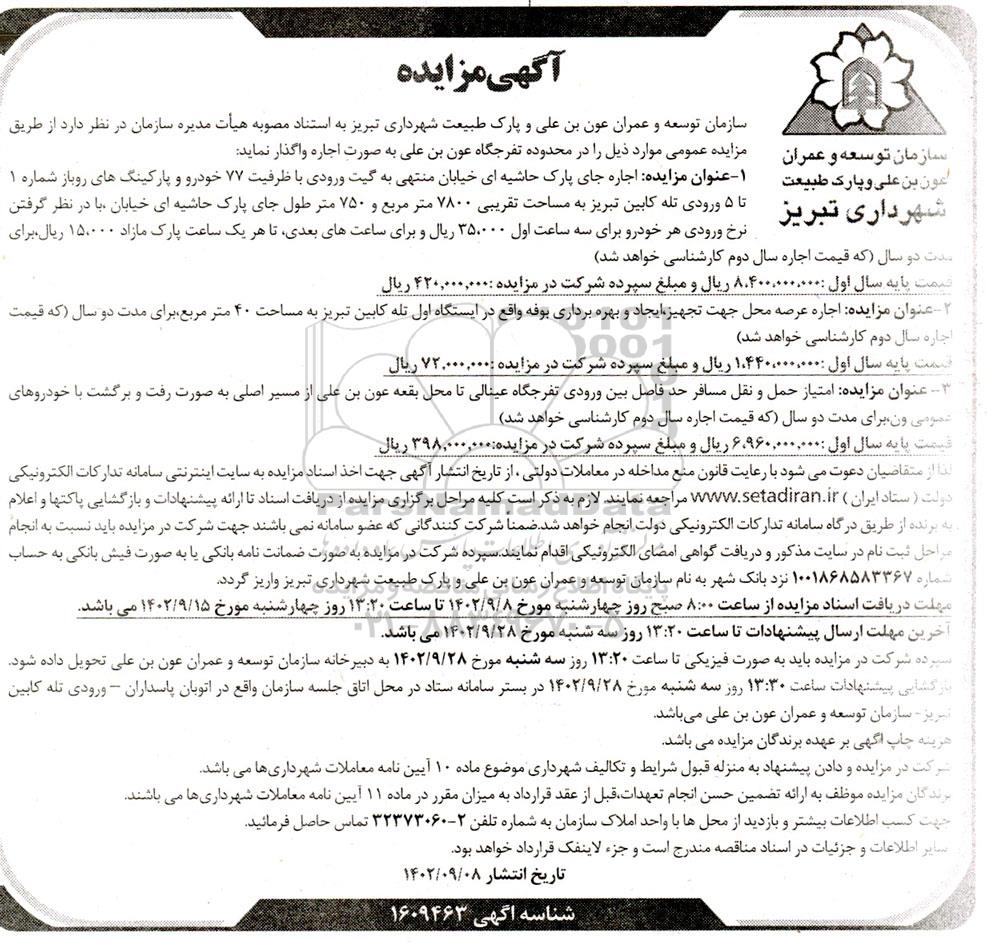 آگهی مزایده
سازمان توسعه و عمران
عون بن علی و پارک طبیعت
شهرداری تبریز
سازمان توسعه و عمران عون بن علی و پارک طبیعت شهرداری تبریز به استناد مصوبه هیأت مدیره سازمان در نظر دارد از طریق
مزایده عمومی موارد ذیل را در محدوده تفرجگاه عون بن علی به صورت اجاره واگذار نماید:
۱-عنوان مزایده: اجاره جای پارک حاشیه ای خیابان منتهی به گیت ورودی با ظرفیت ۷۷ خودرو و پارکینگ های روباز شماره ۱
تا ۵ ورودی تله کابین تبریز به مساحت تقریبی ۷۸۰۰ متر مربع و ۷۵۰ متر طول جای پارک حاشیه ای خیابان ،با در نظر گرفتن
نرخ ورودی هر خودرو برای سه ساعت اول ۳۵،۰۰۰ ریال و برای ساعت های بعدی، تا هر یک ساعت پارک مازاد ۱۵،۰۰۰ ریال،برای
مدت دو سال (که قیمت اجاره سال دوم کارشناسی خواهد شد)
قیمت پایه سال اول :۸،۴۰۰،۰۰۰،۰۰۰ ریال و مبلغ سپرده شرکت در مزایده :۴۲۰،۰۰۰،۰۰۰ ریال
۲-عنوان مزایده: اجاره عرصه محل جهت تجهیز،ایجاد و بهره برداری بوفه واقع در ایستگاه اول تله کابین تبریز به مساحت ۴۰ متر مربع،برای مدت دو سال (که قیمت
اجاره سال دوم کارشناسی خواهد شد)
قیمت پایه سال اول :۱،۴۴۰،۰۰۰،۰۰۰ ریال و مبلغ سپرده شرکت در مزایده :۷۲،۰۰۰،۰۰۰ ریال
۳- عنوان مزایده: امتیاز حمل و نقل مسافر حد فاصل بین ورودی تفرجگاه عینالی تا محل بقعه عون بن علی از مسیر اصلی به صورت رفت و برگشت با خودروهای
عمومی ون،برای مدت دو سال (که قیمت اجاره سال دوم کارشناسی خواهد شد)
قیمت پایه سال اول :۶،۹۶۰،۰۰۰،۰۰۰ ریال و مبلغ سپرده شرکت در مزایده:۳۹۸،۰۰۰،۰۰۰ ریال
لذا از متقاضیان دعوت می شود با رعایت قانون منع مداخله در معاملات دولتی ، از تاریخ انتشار آگهی جهت اخذ اسناد مزایده به سایت اینترنتی سامانه تدارکات الکترونیکی
دولت ( ستاد ایران ) www.setadiran.ir مراجعه نمایند. لازم به ذکر است کلیه مراحل برگزاری مزایده از دریافت اسناد تا ارائه پیشنهادات و بازگشایی پاکتها و اعلام
به برنده از طریق درگاه سامانه تدارکات الکترونیکی دولت انجام خواهد شد.ضمناً شرکت کنندگانی که عضو سامانه نمی باشند جهت شرکت در مزایده باید نسبت به انجام
مراحل ثبت نام در سایت مذکور و دریافت گواهی امضای الکترونیکی اقدام نمایند.سپرده شرکت در مزایده به صورت ضمانت نامه بانکی یا به صورت فیش بانکی به حساب
شماره ۱۰۰۱۸۶۸۵۸۳۳۶۷ نزد بانک شهر به نام سازمان توسعه و عمران عون بن علی و پارک طبیعت شهرداری تبریز واریز گردد.
مهلت دریافت اسناد مزایده از ساعت ۸:۰۰ صبح روز چهارشنبه مورخ ۱۴۰۲/۹/۸ تا ساعت ۱۳:۲۰ روز چهارشنبه مورخ ۱۴۰۲/۹/۱۵ می باشد.
آخرین مهلت ارسال پیشنهادات تا ساعت ۱۳:۲۰ روز سه شنبه مورخ ۱۴۰۲/۹/۲۸ می باشد.
سپرده شرکت در مزایده باید به صورت فیزیکی تا ساعت ۱۳:۲۰ روز سه شنبه مورخ ۱۴۰۲/۹/۲۸ به دبیرخانه سازمان توسعه و عمران عون بن علی تحویل داده شود.
بازگشایی پیشنهادات ساعت ۱۳:۳۰ روز سه شنبه مورخ ۱۴۰۲/۹/۲۸ در بستر سامانه ستاد در محل اتاق جلسه سازمان واقع در اتوبان پاسداران – ورودی تله کابین
تبریز- سازمان توسعه و عمران عون بن علی می‌باشد.
هزینه چاپ آگهی بر عهده برندگان مزایده می باشد.
شرکت در مزایده و دادن پیشنهاد به منزله قبول شرایط و تکالیف شهرداری موضوع ماده ۱۰ آیین نامه معاملات شهرداری‌ها می باشد.
برندگان مزایده موظف به ارائه تضمین حسن انجام تعهدات،قبل از عقد قرارداد به میزان مقرر در ماده ۱۱ آیین نامه معاملات شهرداری‌ها می باشند.
جهت کسب اطلاعات بیشتر و بازدید از محل ها با واحد املاک سازمان به شماره تلفن ۲-۳۲۳۷۳۰۶۰ تماس حاصل فرمائید.
سایر اطلاعات و جزئیات در اسناد مناقصه مندرج است و جزء لاینفک قرارداد خواهد بود.
تاریخ انتشار ۱۴۰۲/۰۹/۰۸
شناسه آگهی ۱۶۰۹۴۶۳
ParsNamadData
۰۲۱-۸۸۳۴۹۶۷۰-۵